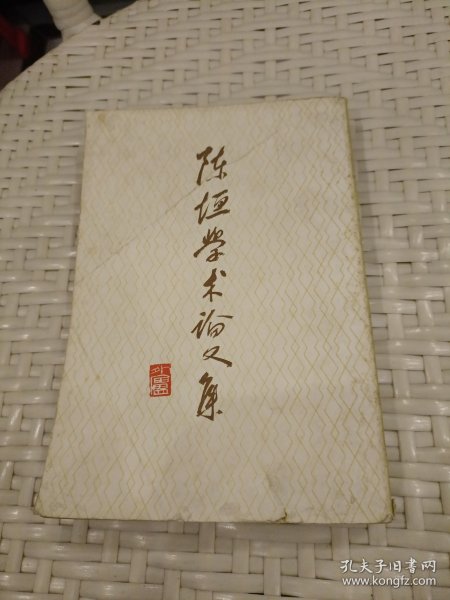 陈垣学术论文集
孔夫子旧书网
www.kongfz.com